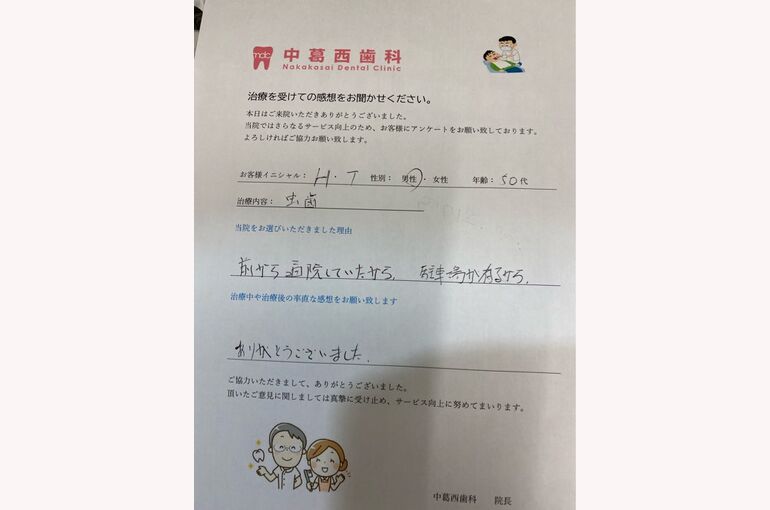 mdc 中葛西歯科
Nakakasai Dental Clinic
治療を受けての感想をお聞かせください。
本日はご来院いただきありがとうございました。
当院ではさらなるサービス向上のため、お客様にアンケートをお願い致しております。
よろしければご協力お願い致します。
お客様イニシャル： H・T 性別： 男性・女性 年齢：50代
治療内容： 虫歯
当院をお選びいただきました理由
前から 通院していたから、 駐車場が有るから、
治療中や治療後の率直な感想をお願い致します
ありがとうございました。
ご協力いただきまして、ありがとうございました。
頂いたご意見に関しましては真摯に受け止め、サービス向上に努めてまいります。
中葛西歯科 院長